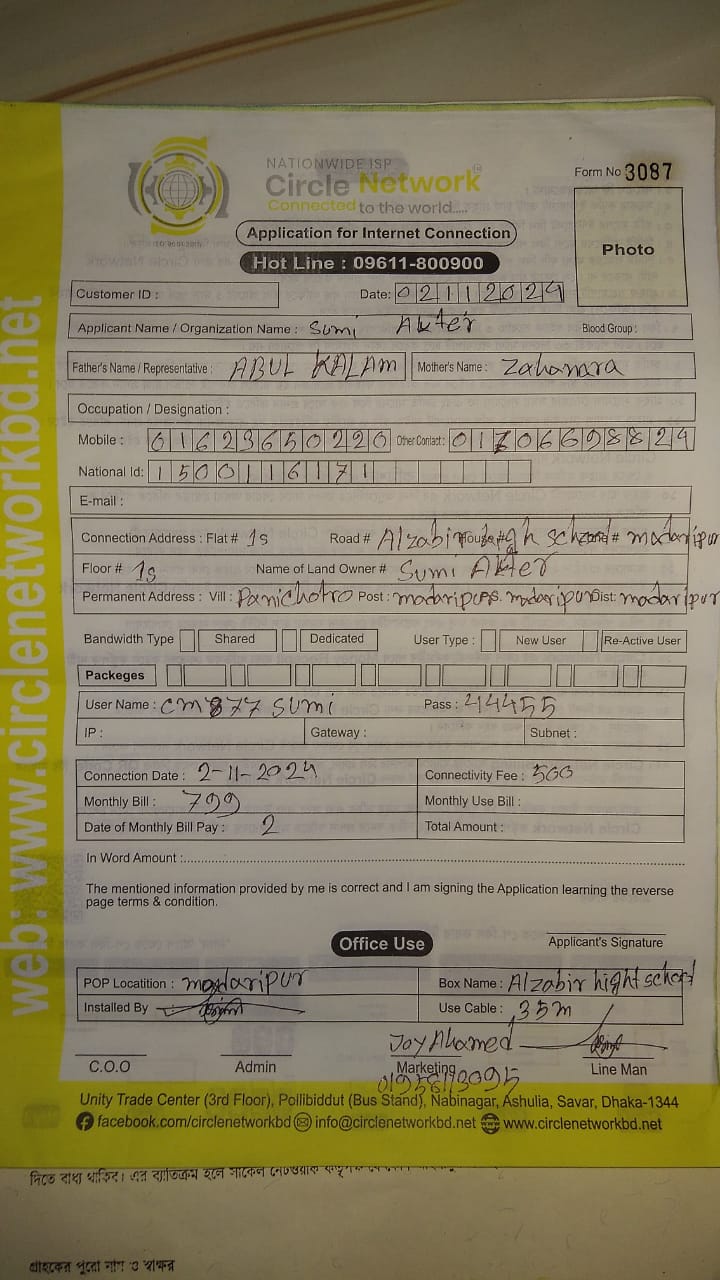 NATIONWIDE ISP
Circle Network
Connected to the world.....
ISO 9001:2015
Form No 3087
Application for Internet Connection
Hot Line : 09611-800900
Photo
Customer ID :
Date: 02112024
Applicant Name / Organization Name : Sumi Akter
Blood Group :
Father's Name / Representative : ABUL KALAM Mother's Name : Zahanara
Occupation / Designation :
Mobile : 01623650220 Other Contact : 01706698824
National Id: 1500116171
E-mail :
Connection Address : Flat # 1s Road # Alzabir high school madaripur
Floor # 1s Name of Land Owner # Sumi Akter
Permanent Address : Vill : Panichotro Post : madaripur P.S. madaripur Dist: madaripur
Bandwidth Type Shared Dedicated User Type : New User Re-Active User
Packeges
User Name : cm877 sumi Pass : 44455
IP : Gateway : Subnet :
Connection Date : 2-11-2024 Connectivity Fee : 500
Monthly Bill : 799 Monthly Use Bill :
Date of Monthly Bill Pay : 2 Total Amount :
In Word Amount :
The mentioned information provided by me is correct and I am signing the Application learning the reverse
page terms & condition.
Office Use
Applicant's Signature
POP Locatition : madaripur Box Name : Alzabir hight school
Installed By Use Cable : 35m
Joy Ahamed
C.O.O Admin Marketing Line Man
Unity Trade Center (3rd Floor), Pollibiddut (Bus Stand), Nabinagar, Ashulia, Savar, Dhaka-1344
facebook.com/circlenetworkbd info@circlenetwork.net www.circlenetworkbd.net
web: www.circlenetworkbd.net
দিতে বাধ্য থাকিব। এর ব্যতিক্রম হলে সার্কেল নেটওয়ার্ক
গ্রাহকের পুরো নাম ও স্বাক্ষর